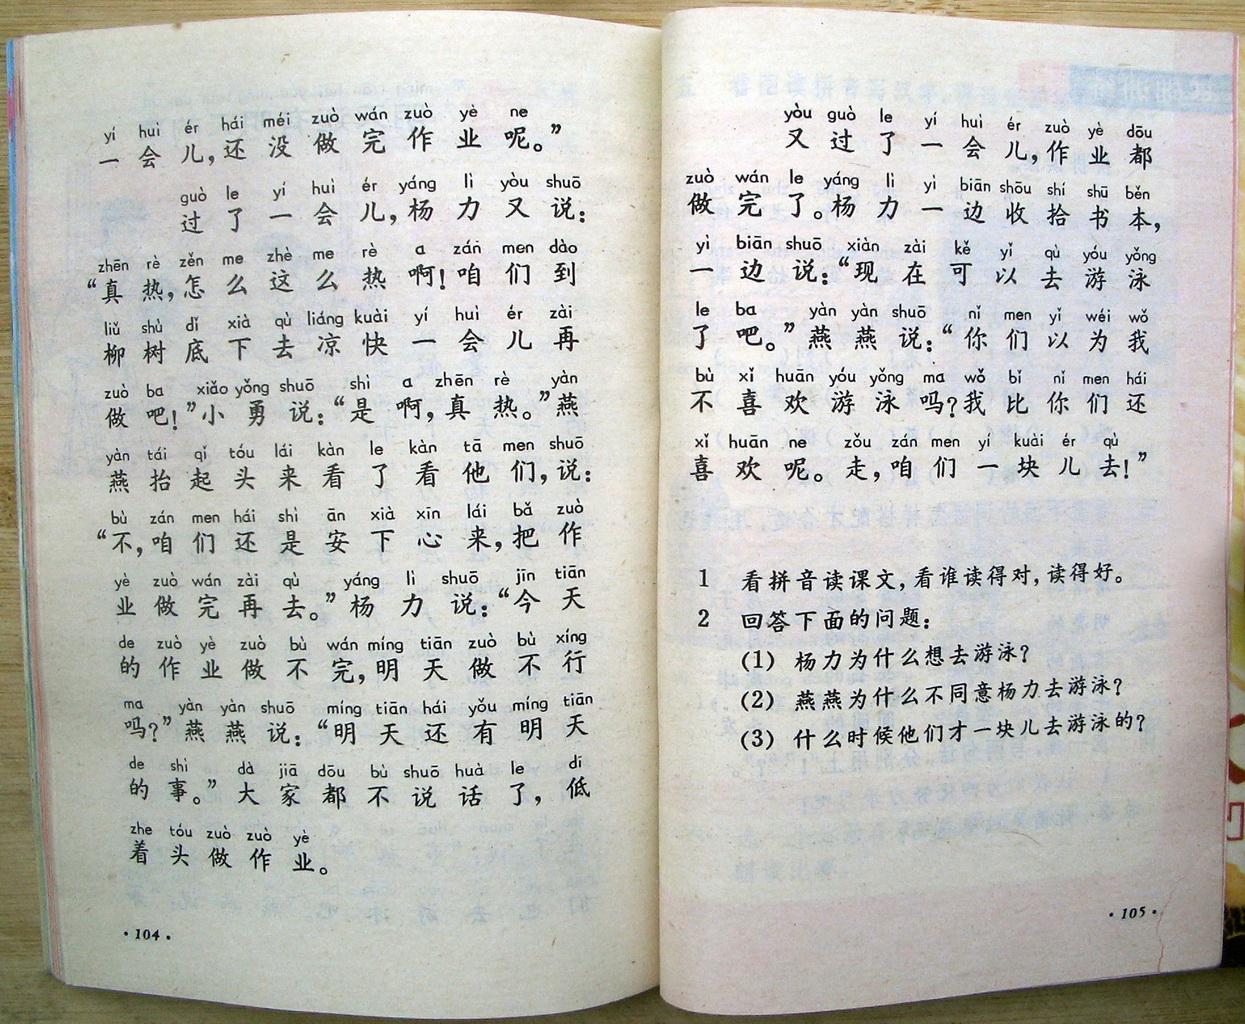 yí huì ér hái méi zuò wán zuò yè ne
一会儿，还没做完作业呢。”
guò le yí huì ér yáng lì yòu shuō
过了一会儿，杨力又说：
zhēn rè zěn me zhè me rè a zán men dào
“真热，怎么这么热啊！咱们到
liǔ shù dǐ xià qù liáng kuài yí huì ér zài
柳树底下去凉快一会儿再
zuò ba xiǎo yǒng shuō shì a zhēn rè yàn
做吧！”小勇说：“是啊，真热。”燕
yàn tái qǐ tóu lái kàn le kàn tā men shuō
燕抬起头来看了看他们，说：
bù zán men hái shì ān xià xīn lái bǎ zuò
“不，咱们还是安下心来，把作
yè zuò wán zài qù yáng lì shuō jīn tiān
业做完再去。”杨力说：“今天
de zuò yè zuò bù wán míng tiān zuò bù xíng
的作业做不完，明天做不行
ma yàn yàn shuō míng tiān hái yǒu míng tiān
吗？”燕燕说：“明天还有明天
de shì dà jiā dōu bù shuō huà le dī
的事。”大家都不说话了，低
zhe tóu zuò zuò yè
着头做作业。
·104·
yòu guò le yí huì ér zuò yè dōu
又过了一会儿，作业都
zuò wán le yáng lì yì biān shōu shí shū běn
做完了。杨力一边收拾书本，
yì biān shuō xiàn zài kě yǐ qù yóu yǒng
一边说：“现在可以去游泳
le ba yàn yàn shuō nǐ men yǐ wéi wǒ
了吧。”燕燕说：“你们以为我
bù xǐ huān yóu yǒng ma wǒ bǐ nǐ men hái
不喜欢游泳吗？我比你们还
xǐ huān ne zǒu zán men yí kuài ér qù
喜欢呢。走，咱们一块儿去！”
1 看拼音读课文，看谁读得对，读得好。
2 回答下面的问题：
(1) 杨力为什么想去游泳？
(2) 燕燕为什么不同意杨力去游泳？
(3) 什么时候他们才一块儿去游泳的？
·105·